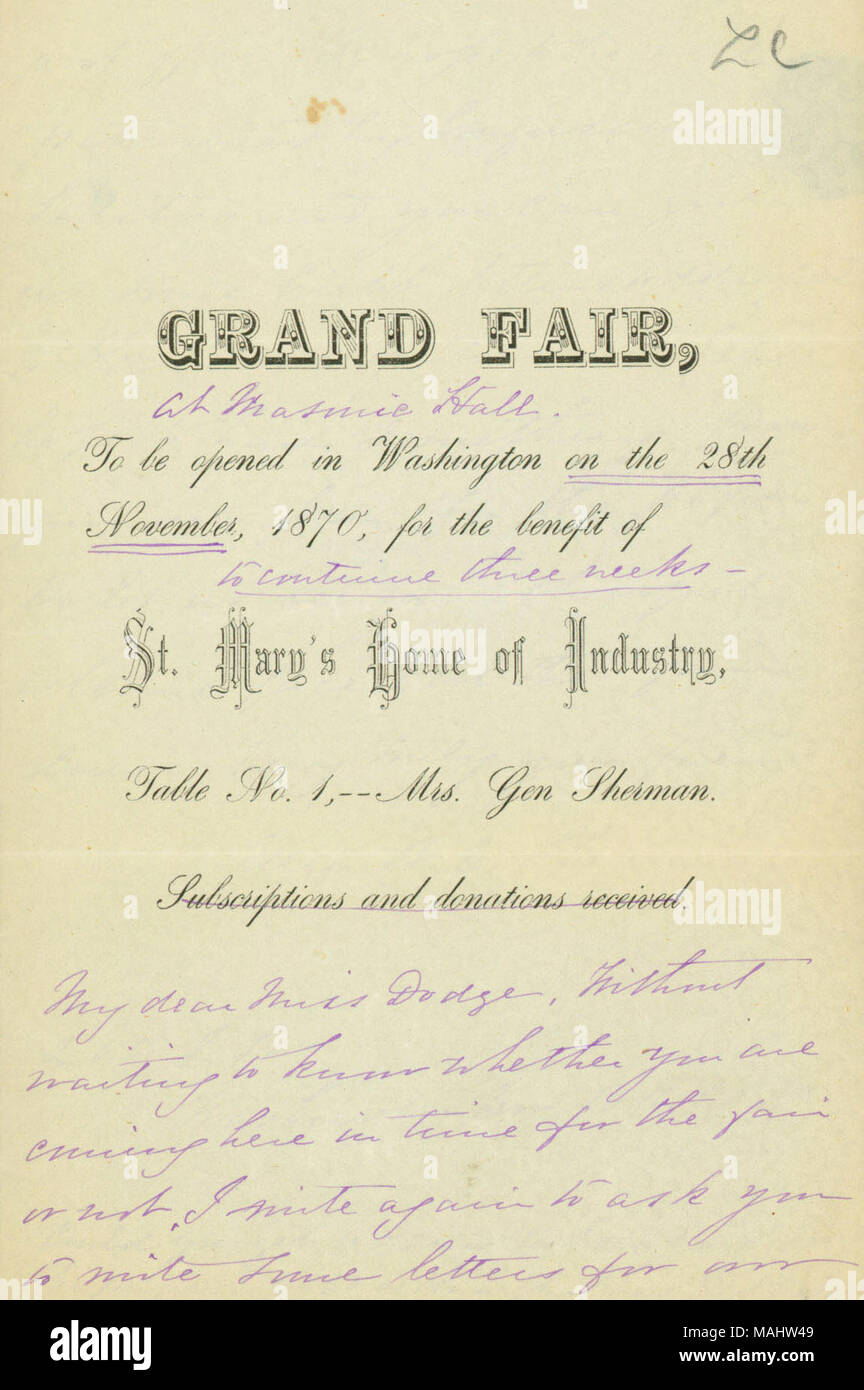 LC
GRAND FAIR,
At Masonic Hall.
To be opened in Washington on the 28th
November, 1870, for the benefit of
to continue three weeks –
St. Mary's Home of Industry,
Table No. 1,--Mrs. Gen Sherman.
Subscriptions and donations received.
My dear Miss Dodge, Without
waiting to know whether you are
coming here in time for the fair
or not, I write again to ask you
to write some letters for our
alamy
Image ID: MAHW49
www.alamy.com